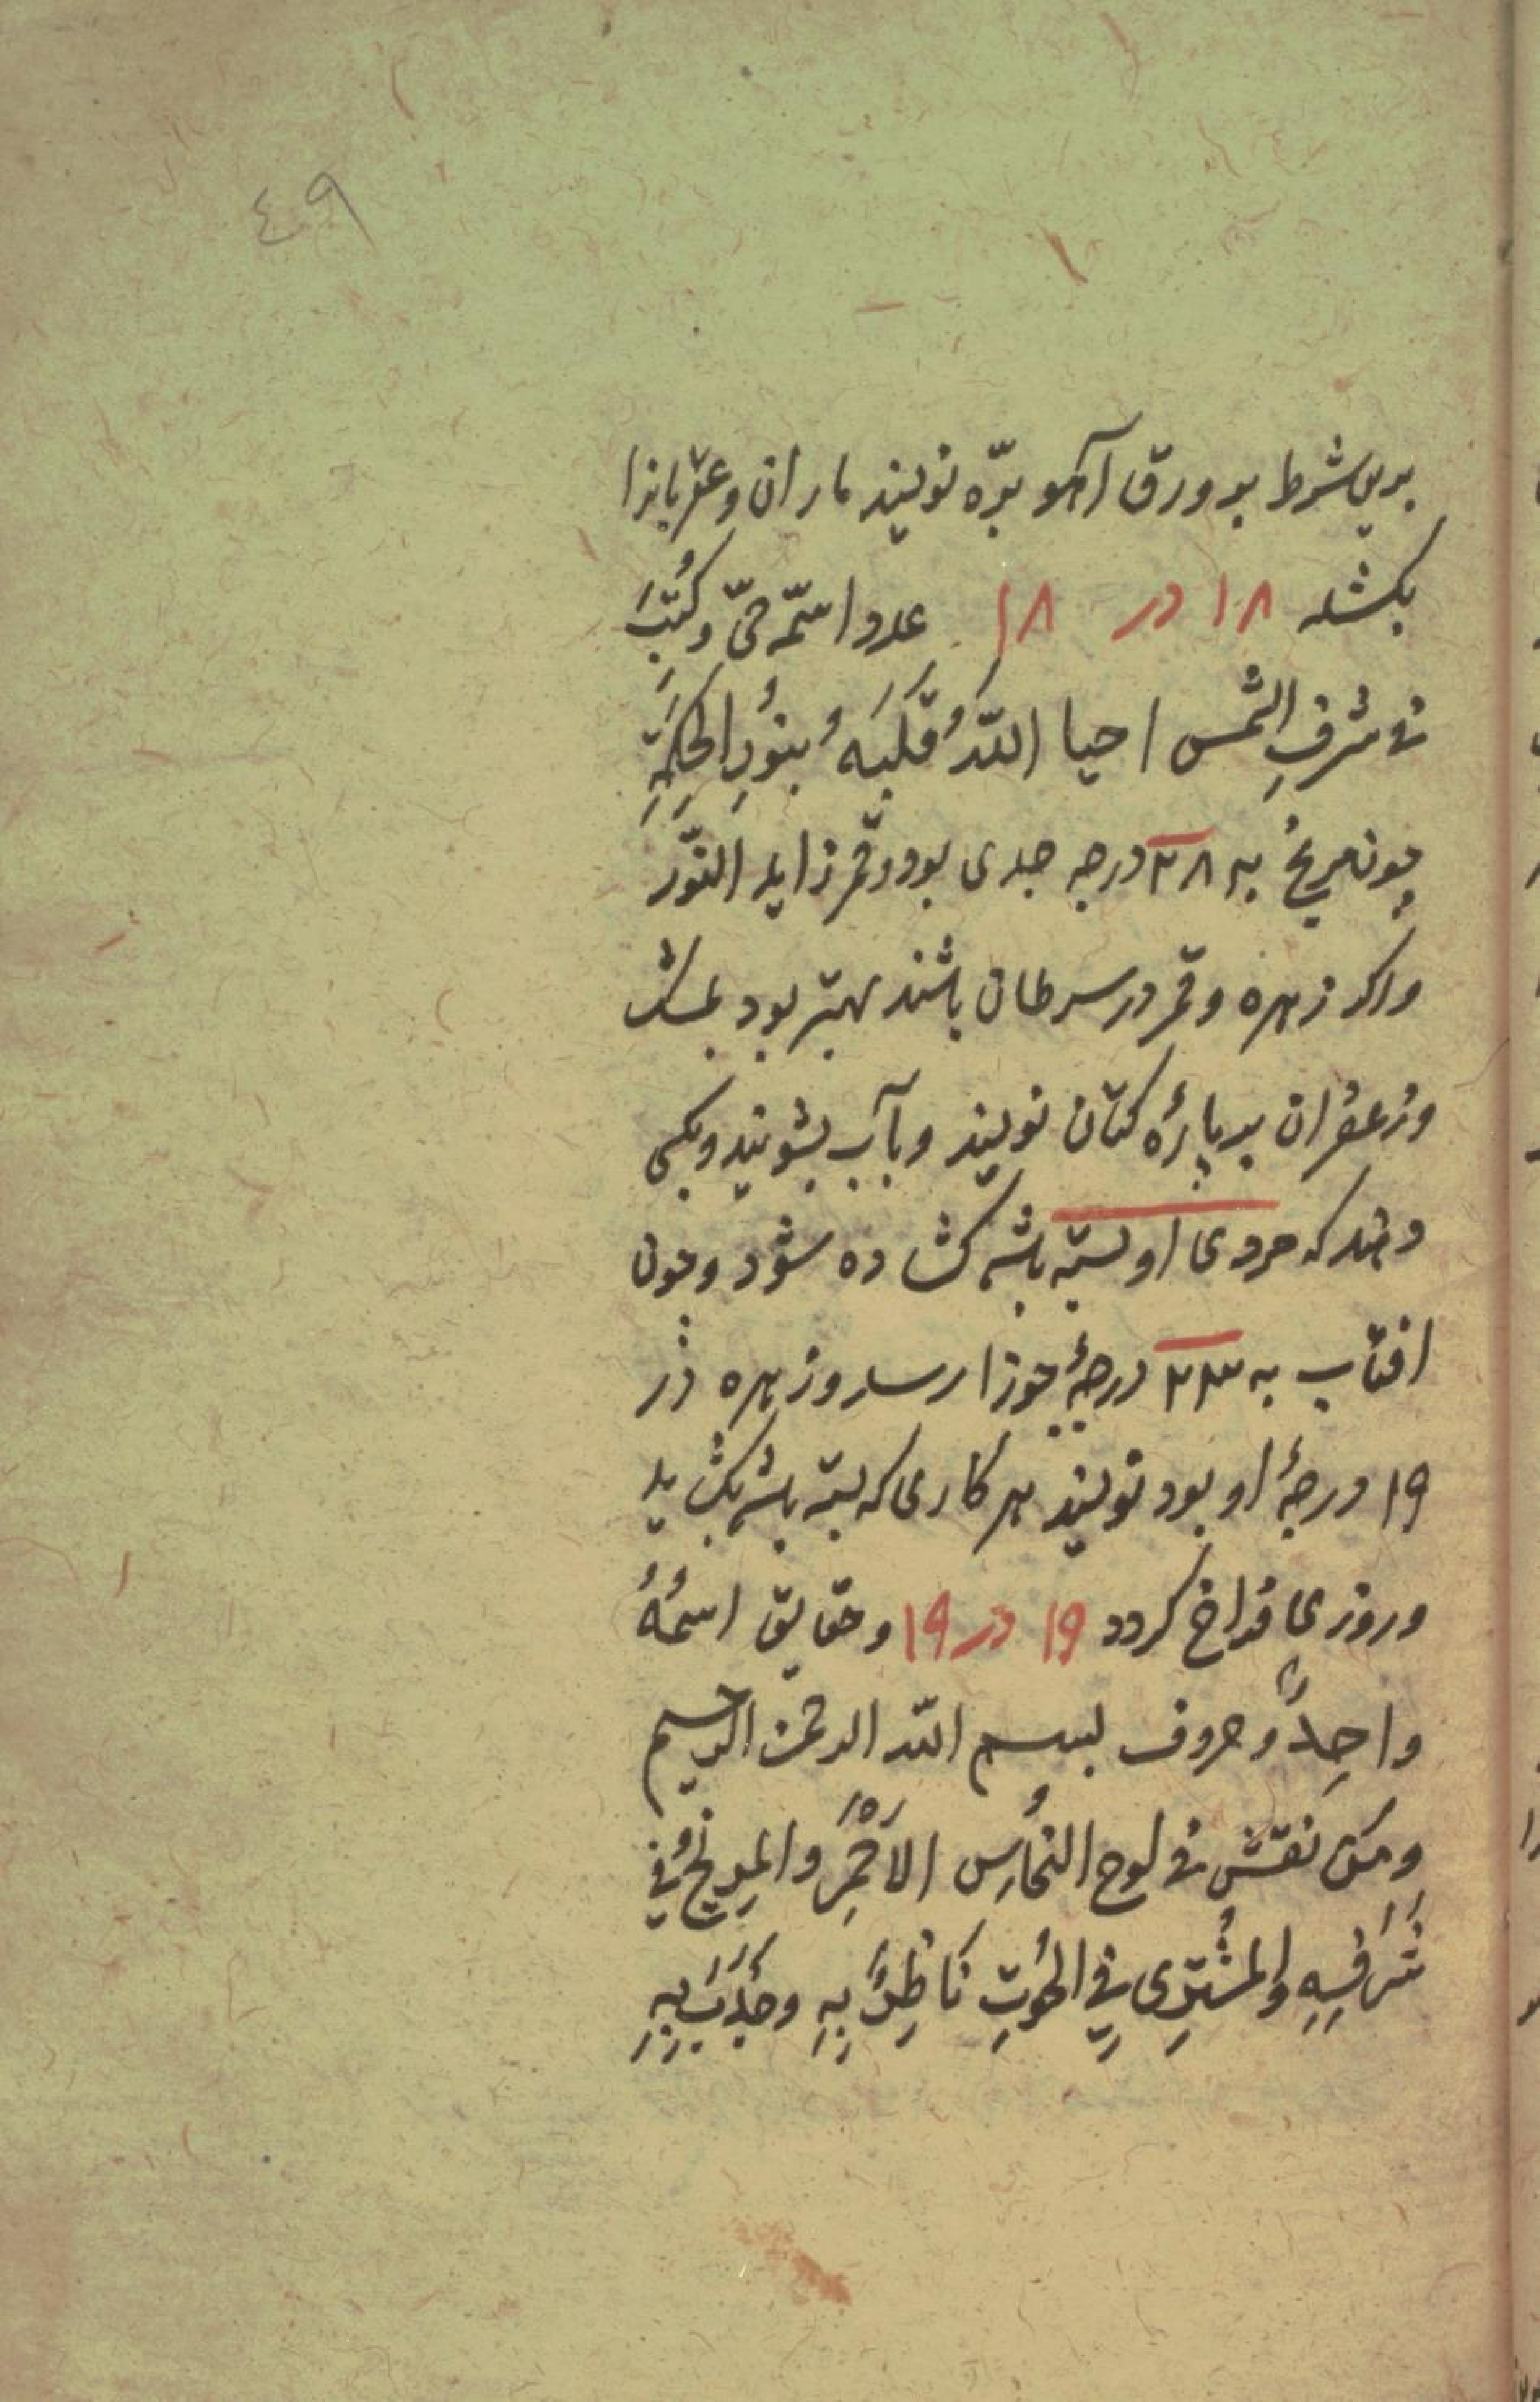 ٤٩
برین شرط بر ورق آهو برّه نویسند ماران و عقربانرا
بکشد ١٨ در ١٨ عدد اسمّه حیّ و کُتِبَ
فی شرفِ الشمس احیا اللّهُ قَلبَهُ بنُورِ الحِکمَةِ
چون مریخ به ٢٨ درجه جدی بود و قمر زاید النّور
و اکر زهره و قمر در سرطان باشند بهتر بود بمشک
و زعفران بر پارهٔ کتان نویسند و بآب بشویند و بکسی
دهند که مردی او بسته باشد کشاده شود و چون
افتاب به ٢٣ درجهٔ جوزا رسد و زهره در
١٩ درجهٔ او بود نویسند هر کاری که بسته باشد بکشاید
و روزی فراخ کردد ١٩ در ١٩ و حقایق اسمُهُ
واحِدٌ و حروف بسم اللّه الرحمن الرحیم
و مَن نقش فی لوح النُحاسِ الاَحْمَرِ و المِریخُ فی
شَرَفِهِ و المُشتَرِی فِی الحُوتِ نَاظِرًا بِهِ وَ جَذَبَ بِهِ